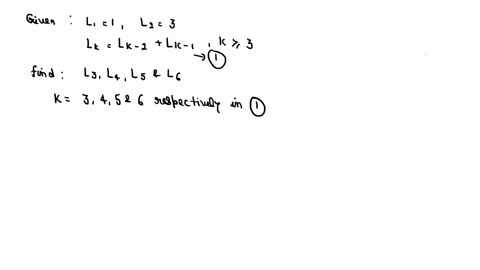 Given : L₁ = 1 , L₂ = 3
Lₖ = Lₖ₋₂ + Lₖ₋₁ , K ≥ 3
→ ①
find : L₃, L₄, L₅ & L₆
K = 3, 4, 5 & 6 respectively in ①